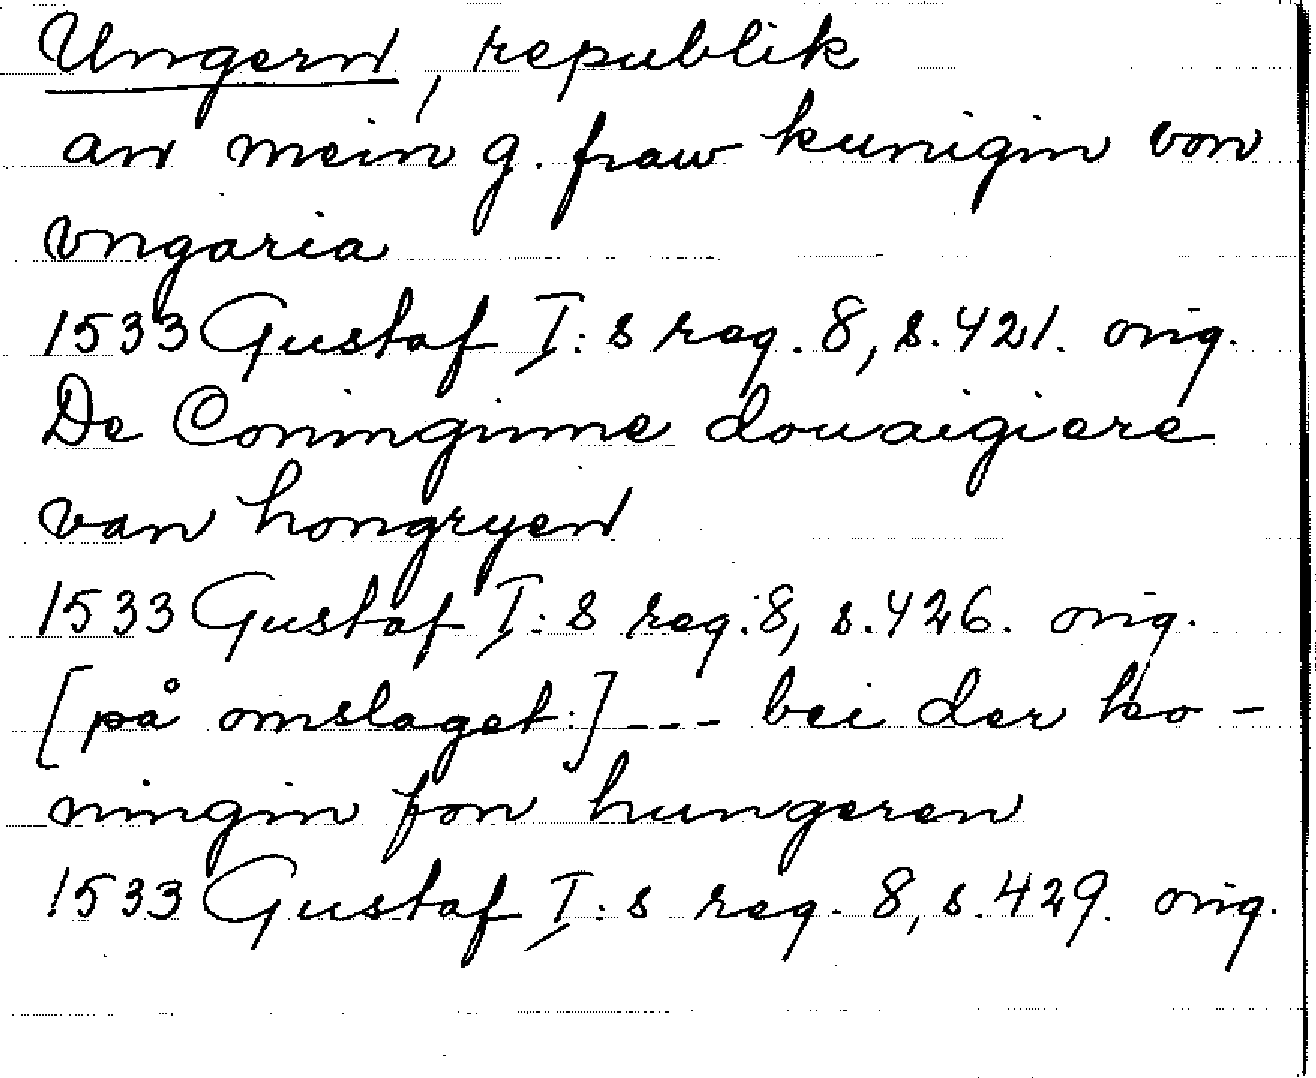 Ungern, republik
an mein g. fraw kunigin von
vngaria
1533 Gustaf I:s reg. 8, s. 421. orig.
De Coninginne douaigiere
van hongryen
1533 Gustaf I:s reg. 8, s. 426. orig.
[på omslaget:] --- bei der ko-
ningin fon hungeren
1533 Gustaf I:s reg. 8, s. 429. orig.